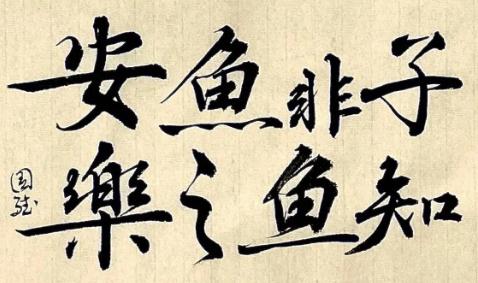 子非魚安
知魚之樂